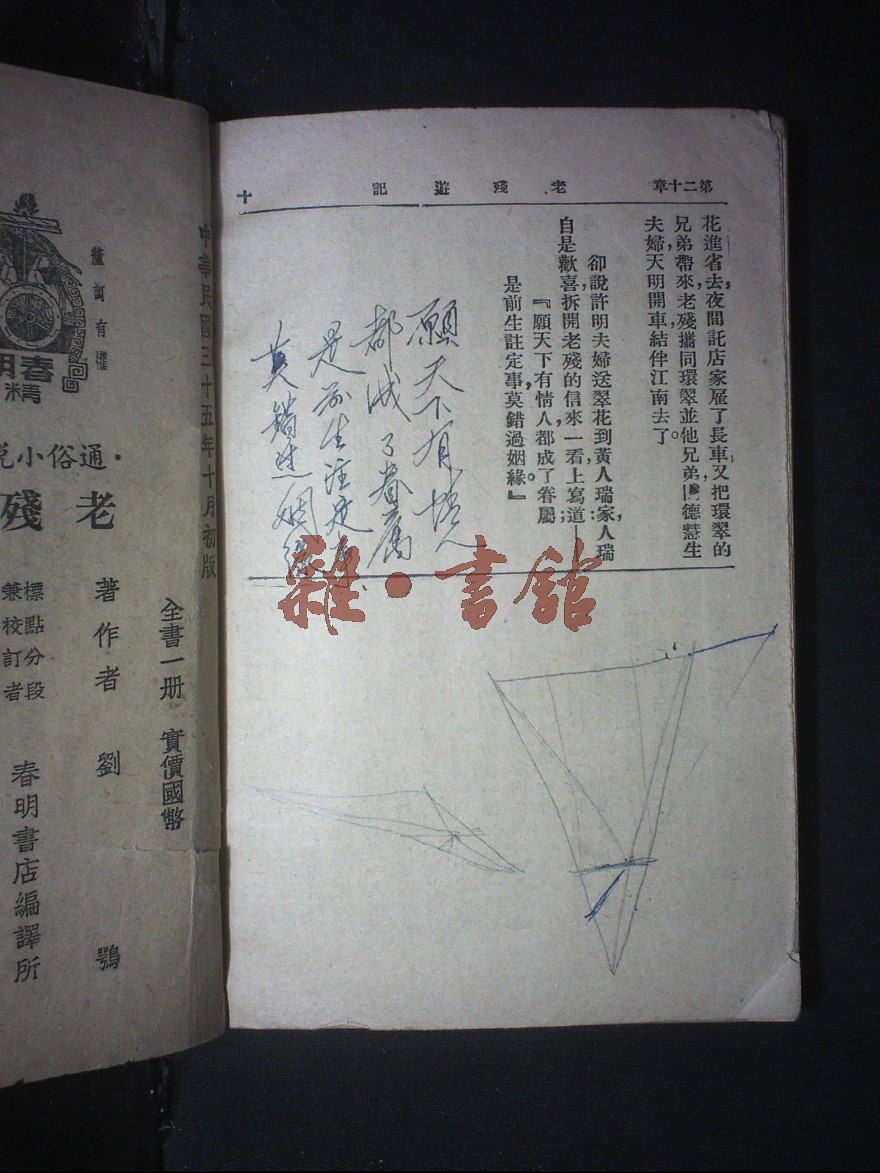 第二十章
老殘遊記
十
花進省去，夜間託店家雇了長車，又把環翠的
兄弟帶來，老殘攜同環翠並他兄弟同德慧生
夫婦天明開車結伴江南去了。
卻說許明夫婦送翠花到黃人瑞家，人瑞
自是歡喜，拆開老殘的信來一看，上寫道：——
『願天下有情人都成了眷屬；
是前生註定事，莫錯過姻緣。』
願天下有情人
都成了眷屬
是前生註定事
莫錯過姻緣
雜·書館
中華民國三十五年十月初版
有權
春明
精
·通俗小說
老殘
全書一册 實價國幣
著作者 劉鶚
標點分段
兼校訂者
春明書店編譯所